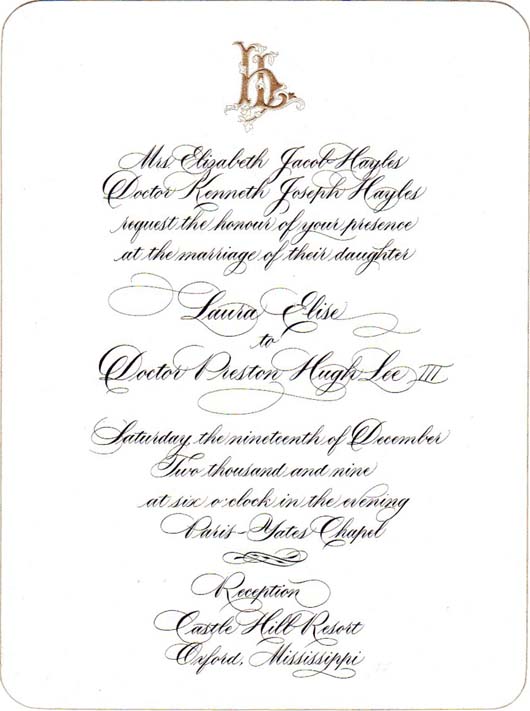 Mrs Elizabeth Jacob Hayles
Doctor Kenneth Joseph Hayles
request the honour of your presence
at the marriage of their daughter
Laura Elise
to
Doctor Preston Hugh Lee III
Saturday, the nineteenth of December
Two thousand and nine
at six o'clock in the evening
Paris-Yates Chapel
Reception
Castle Hill Resort
Oxford, Mississippi